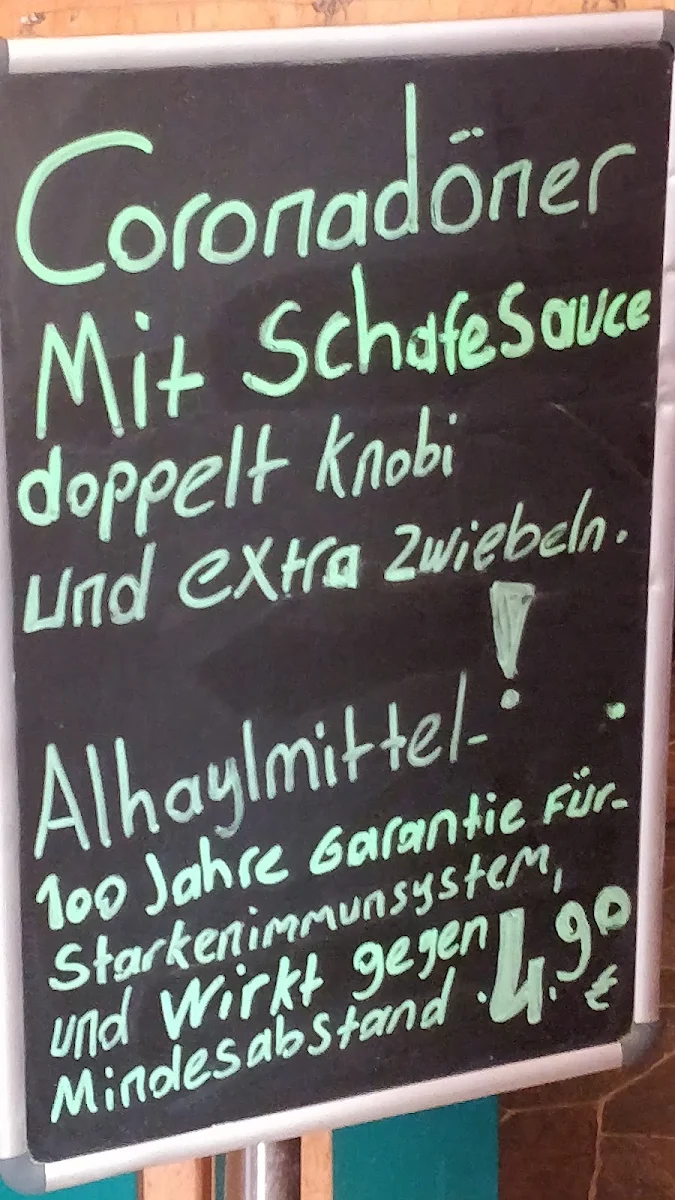 Coronadöner
Mit Schafesauce
doppelt Knobi
und extra Zwiebeln.
!
Alhaylmittel-
100 Jahre Garantie Für-
Starkenimmunsystem,
und Wirkt gegen
Mindesabstand . 4.90
€